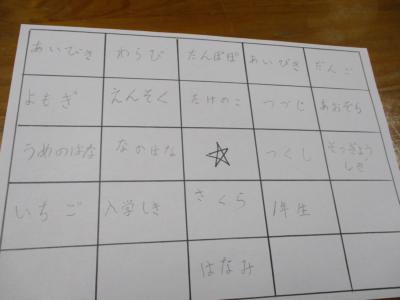 あいびき わらび たんぽぽ あいびき だんご
よもぎ えんそく たけのこ つつじ あおぞら
うめのはな なのはな つくし そつぎょう
しき
いちご 入学しき さくら 1年生
はなみ